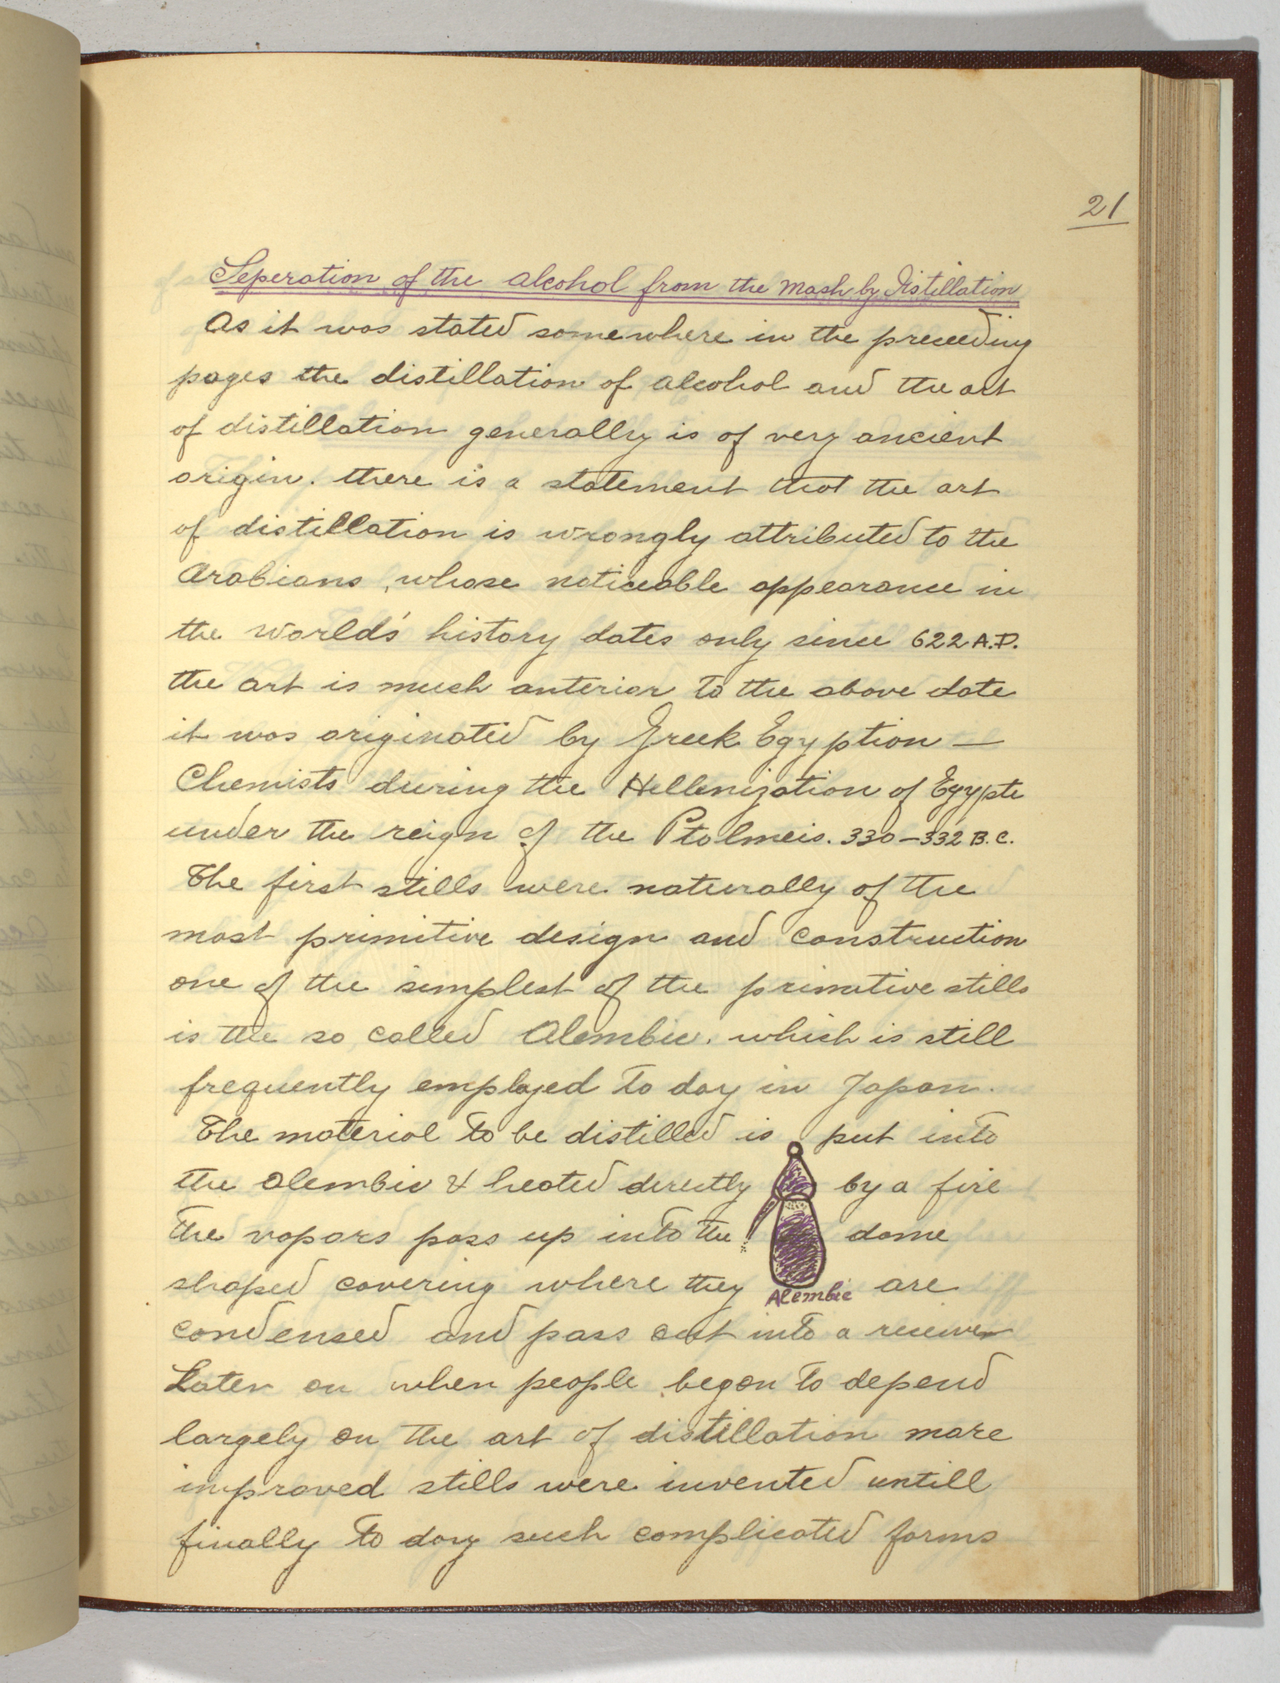 21
Seperation of the alcohol from the Mash by Distillation
As it was stated somewhere in the preceeding
pages the distillation of alcohol and the art
of distillation generally is of very ancient
origin. there is a statement that the art
of distillation is wrongly attributed to the
Arabians, whose noticeable appearance in
the world's history dates only since 622 A.D.
the art is much anterior to the above date
it was originated by Greek Egyption —
Chemists during the Hellenization of Egypte
under the reign of the Ptolmeis. 330-332 B.C.
The first stills were naturally of the
most primitive design and construction
one of the simplest of the primitive stills
is the so called Alembic. which is still
frequently employed to day in Japan.
The material to be distilled is put into
the alembic & heated directly by a fire
The vapors pass up into the dome
shaped covering where they are
Alembic
condensed and pass out into a receiver
Later on when people began to depend
largely on the art of distillation more
improved stills were invented untill
finally to day such complicated forms